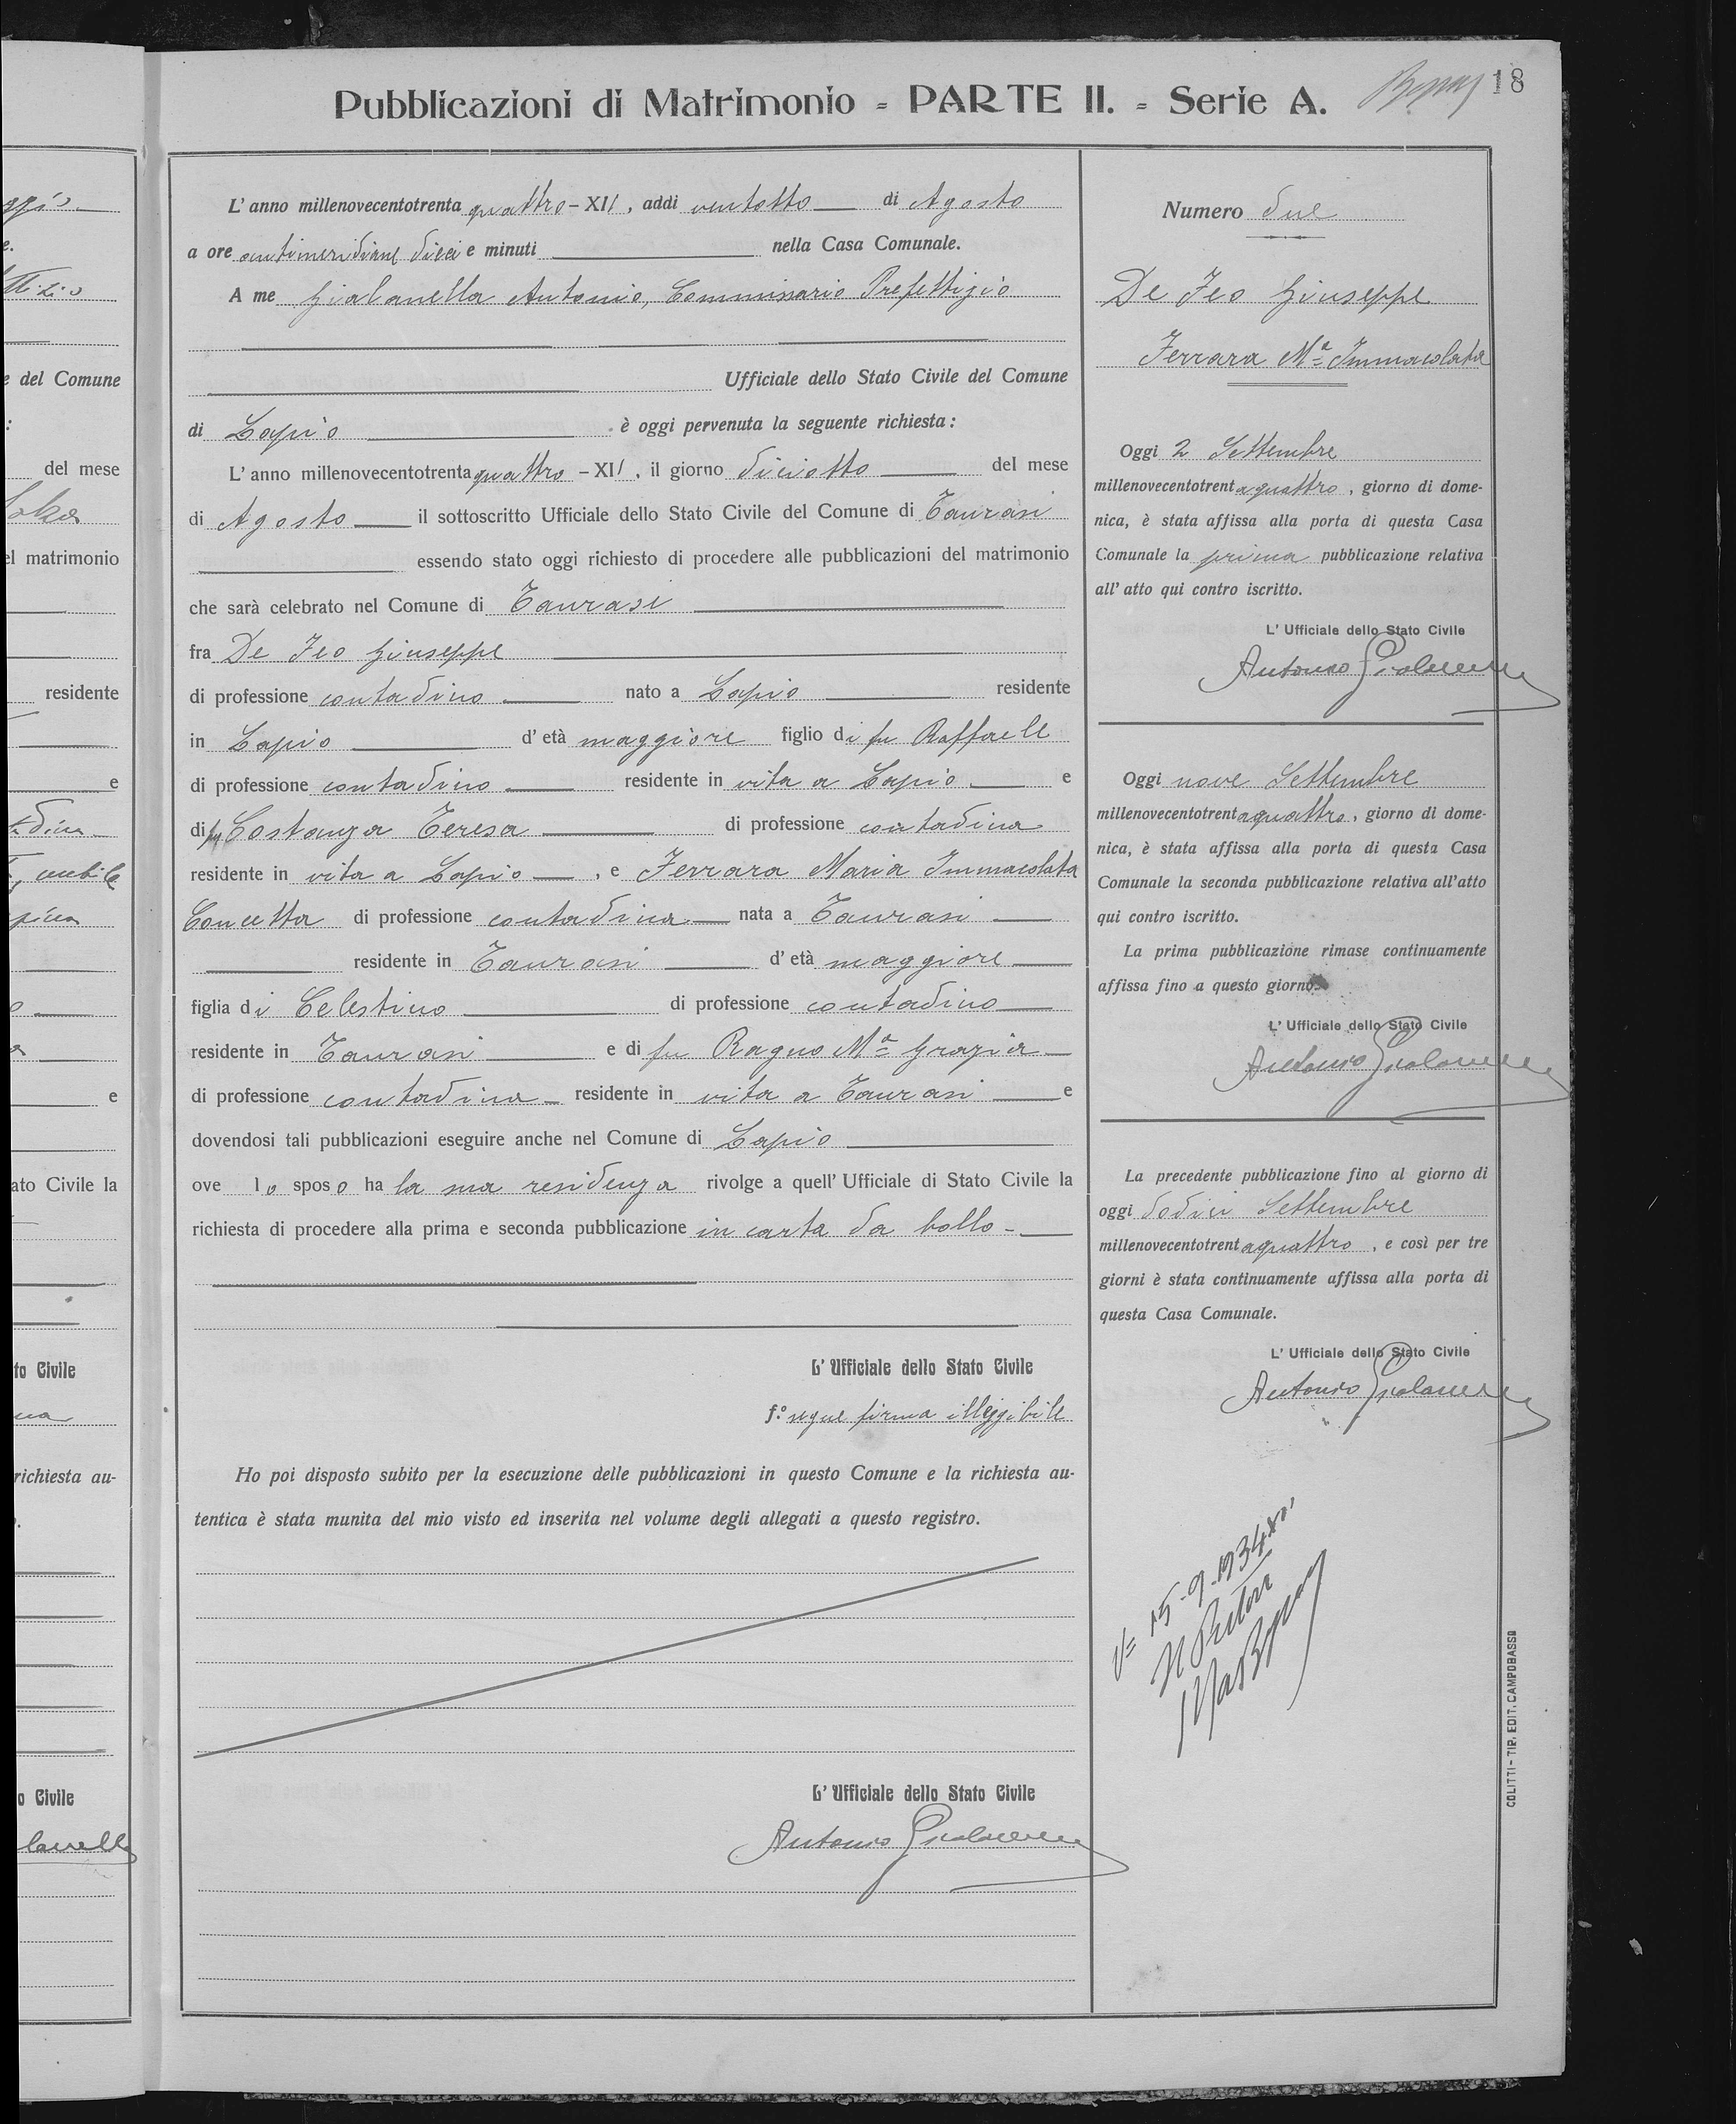 Pubblicazioni di Matrimonio - PARTE II. - Serie A.
18
L'anno millenovecentotrenta quattro - XII, addì ventotto di Agosto
a ore antimeridiane dieci e minuti nella Casa Comunale.
A me Gialanella Antonio, Commissario Prefettizio
Ufficiale dello Stato Civile del Comune
di Lapio è oggi pervenuta la seguente richiesta:
L'anno millenovecentotrenta quattro - XII, il giorno diciotto del mese
di Agosto il sottoscritto Ufficiale dello Stato Civile del Comune di Taurasi
essendo stato oggi richiesto di procedere alle pubblicazioni del matrimonio
che sarà celebrato nel Comune di Taurasi
fra De Feo Giuseppe
di professione contadino nato a Lapio residente
in Lapio d'età maggiore figlio di fu Raffaele
di professione contadino residente in vita a Lapio e
di fu Costanza Teresa di professione contadina
residente in vita a Lapio, e Ferrara Maria Immacolata
Concetta di professione contadina nata a Taurasi
residente in Taurasi d'età maggiore
figlia di Celestino di professione contadino
residente in Taurasi e di fu Ragno Mª Grazia
di professione contadina residente in vita a Taurasi e
dovendosi tali pubblicazioni eseguire anche nel Comune di Lapio
ove lo sposo ha la sua residenza rivolge a quell'Ufficiale di Stato Civile la
richiesta di procedere alla prima e seconda pubblicazione in carta da bollo -
L'Ufficiale dello Stato Civile
fº segue firma illeggibile
Ho poi disposto subito per la esecuzione delle pubblicazioni in questo Comune e la richiesta au-
tentica è stata munita del mio visto ed inserita nel volume degli allegati a questo registro.
L'Ufficiale dello Stato Civile
Antonio Gialanella
Numero due
De Feo Giuseppe
Ferrara Mª Immacolata
Oggi 2 Settembre
millenovecentotrentaquattro, giorno di dome-
nica, è stata affissa alla porta di questa Casa
Comunale la prima pubblicazione relativa
all'atto qui contro iscritto.
L'Ufficiale dello Stato Civile
Antonio Gialanella
Oggi nove Settembre
millenovecentotrentaquattro, giorno di dome-
nica, è stata affissa alla porta di questa Casa
Comunale la seconda pubblicazione relativa all'atto
qui contro iscritto.
La prima pubblicazione rimase continuamente
affissa fino a questo giorno.
L'Ufficiale dello Stato Civile
Antonio Gialanella
La precedente pubblicazione fino al giorno di
oggi dodici Settembre
millenovecentotrentaquattro, e così per tre
giorni è stata continuamente affissa alla porta di
questa Casa Comunale.
L'Ufficiale dello Stato Civile
Antonio Gialanella
V= 15-9-1934
Il Pretore
COLITTI - TIP. EDIT. CAMPOBASSO
del Comune
del mese
el matrimonio
residente
e
e
ato Civile la
to Civile
richiesta au-
o Civile